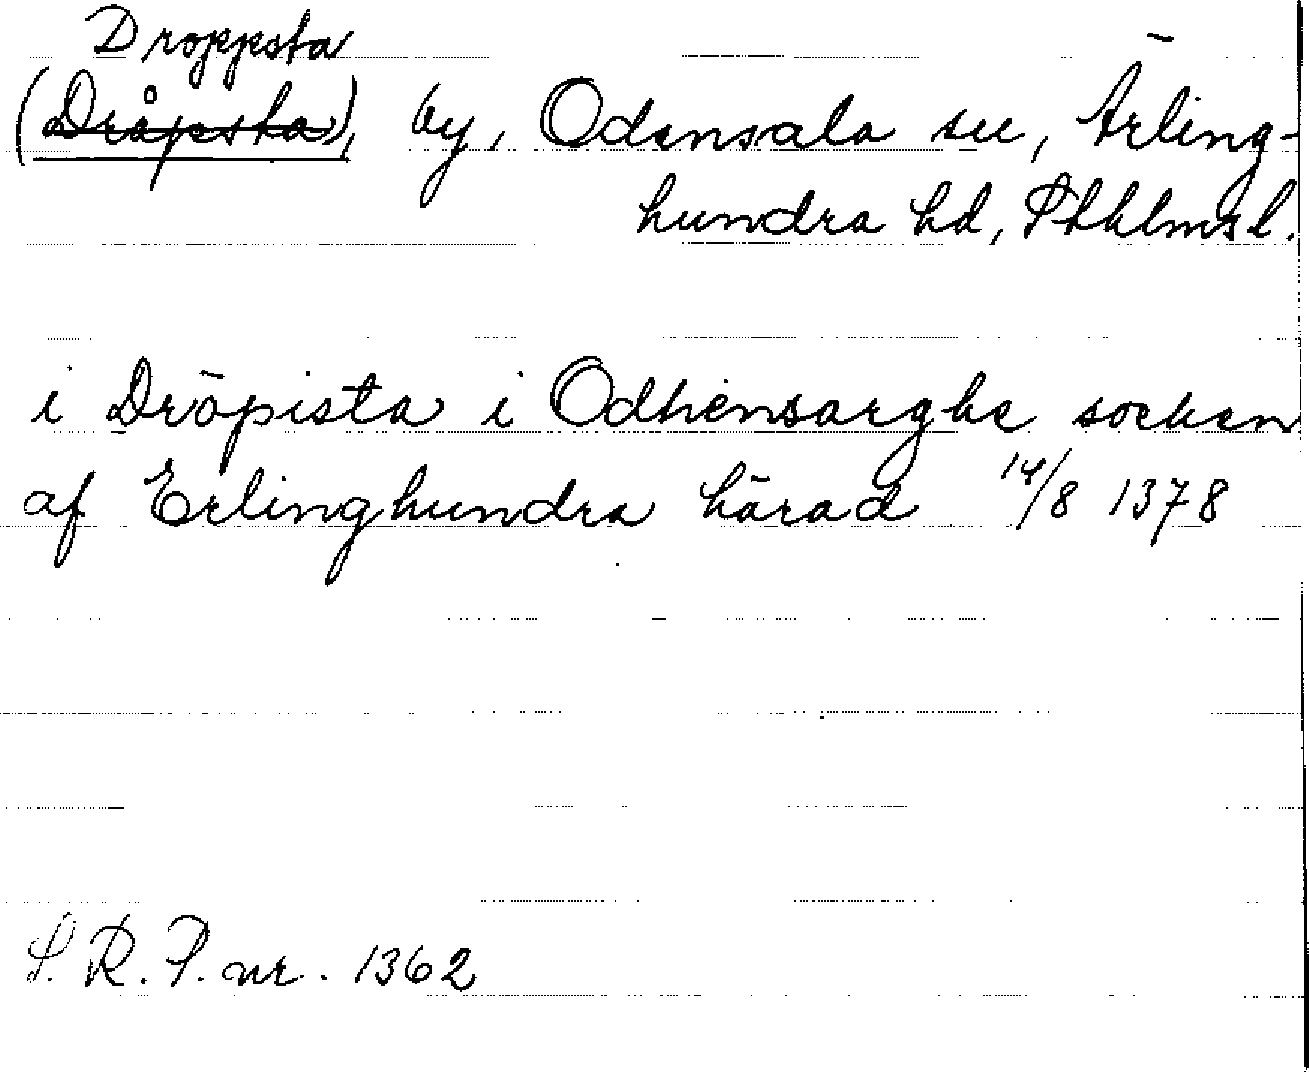 Droppsta
(Dråpsta), by, Odensala sn, Ärling-
hundra hd, Sthlms l.
i Dröpista i Odhensarghe socken
af Erlinghundra härad 14/8 1378
S. R. P. nr. 1362